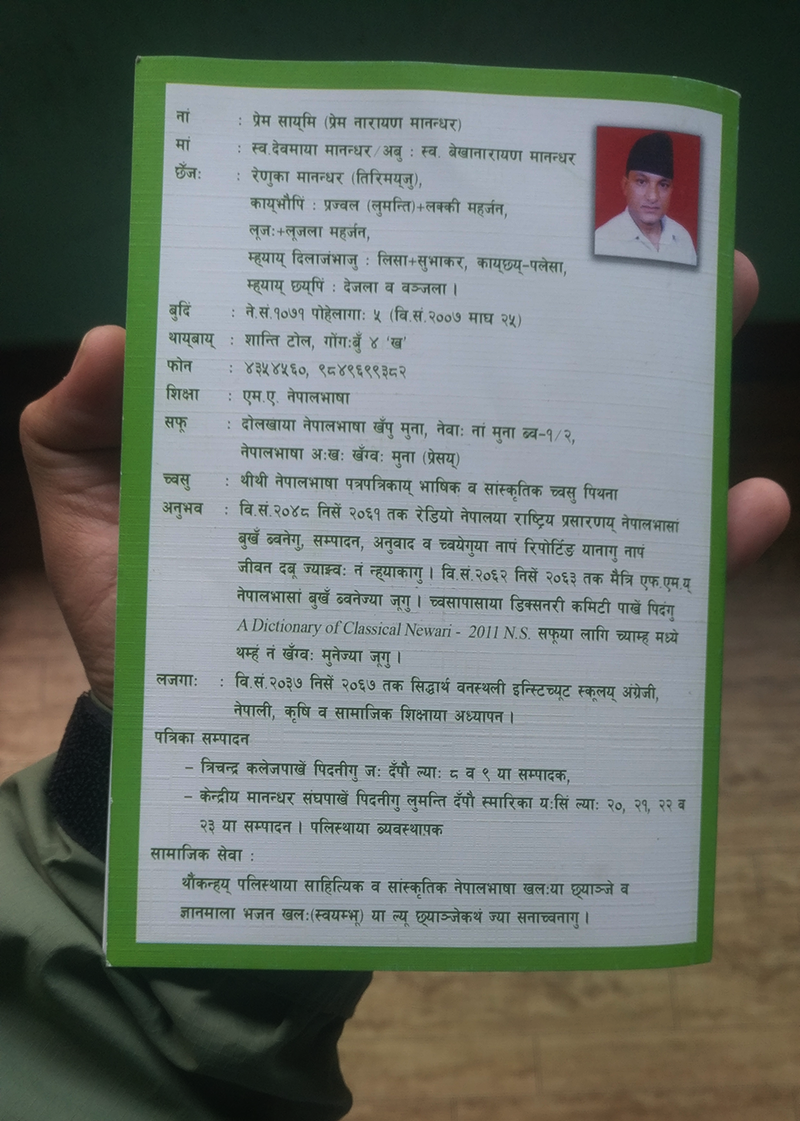 नां : प्रेम साय्‌मि (प्रेम नारायण मानन्धर)
मां : स्व.देवमाया मानन्धर/अबु : स्व. बेखानारायण मानन्धर
छेँजः : रेणुका मानन्धर (तिरिमय्‌जु),
काय्‌भौपिं : प्रज्वल (लुमन्ति)+लक्की महर्जन,
लूजः+लूजला महर्जन,
म्ह्याय् दिलाजंभाजु : लिसा+सुभाकर, काय्‌छय्-पलेसा,
म्ह्याय् छय्‌पिं : देजला व वञ्जला ।
बुदिं : ने.सं.१०७१ पोहेलागाः ५ (वि.सं.२००७ माघ २५)
थाय्‌बाय् : शान्ति टोल, गोंगःबुँ ४ ‘ख’
फोन : ४३५४५६०, ९८४९६९९३८२
शिक्षा : एम.ए. नेपालभाषा
सफू : दोलखाया नेपालभाषा खँपु मुना, नेवाः नां मुना ब्व-१/२,
नेपालभाषा अःखः खँग्वः मुना (प्रेसय्)
च्वसु : थीथी नेपालभाषा पत्रपत्रिकाय् भाषिक व सांस्कृतिक च्वसु पिथना
अनुभव : वि.सं.२०४८ निसें २०६१ तक रेडियो नेपालया राष्ट्रिय प्रसारणय् नेपालभासां
बुखँ ब्वनेगु, सम्पादन, अनुवाद व च्वयेगुया नापं रिपोर्टिङ यानागु नापं
जीवन दबू ज्याझ्वः नं न्ह्याकागु । वि.सं.२०६२ निसें २०६३ तक मैत्रि एफ.एम.य्
नेपालभासां बुखँ ब्वनेज्या जूगु । च्वसापासाया डिक्सनरी कमिटी पाखें पिदंगु
A Dictionary of Classical Newari - 2011 N.S. सफूया लागि च्याम्ह मध्ये
थम्हं नं खँग्वः मुनेज्या जूगु ।
लजगाः : वि.सं.२०३७ निसें २०६७ तक सिद्धार्थ वनस्थली इन्स्टिच्यूट स्कूलय् अंग्रेजी,
नेपाली, कृषि व सामाजिक शिक्षाया अध्यापन ।
पत्रिका सम्पादन
– त्रिचन्द्र कलेजपाखें पिदनीगु जः दँपौ ल्याः ८ व ९ या सम्पादक,
– केन्द्रीय मानन्धर संघपाखें पिदनीगु लुमन्ति दँपौ स्मारिका यःसिं ल्याः २०, २१, २२ व
२३ या सम्पादन । पलिस्थाया ब्यवस्थापक
सामाजिक सेवा :
थौंकन्हय् पलिस्थाया साहित्यिक व सांस्कृतिक नेपालभाषा खलःया छ्याञ्जे व
ज्ञानमाला भजन खलः(स्वयम्भू) या ल्यू छ्याञ्जेकथं ज्या सनाच्वनागु ।